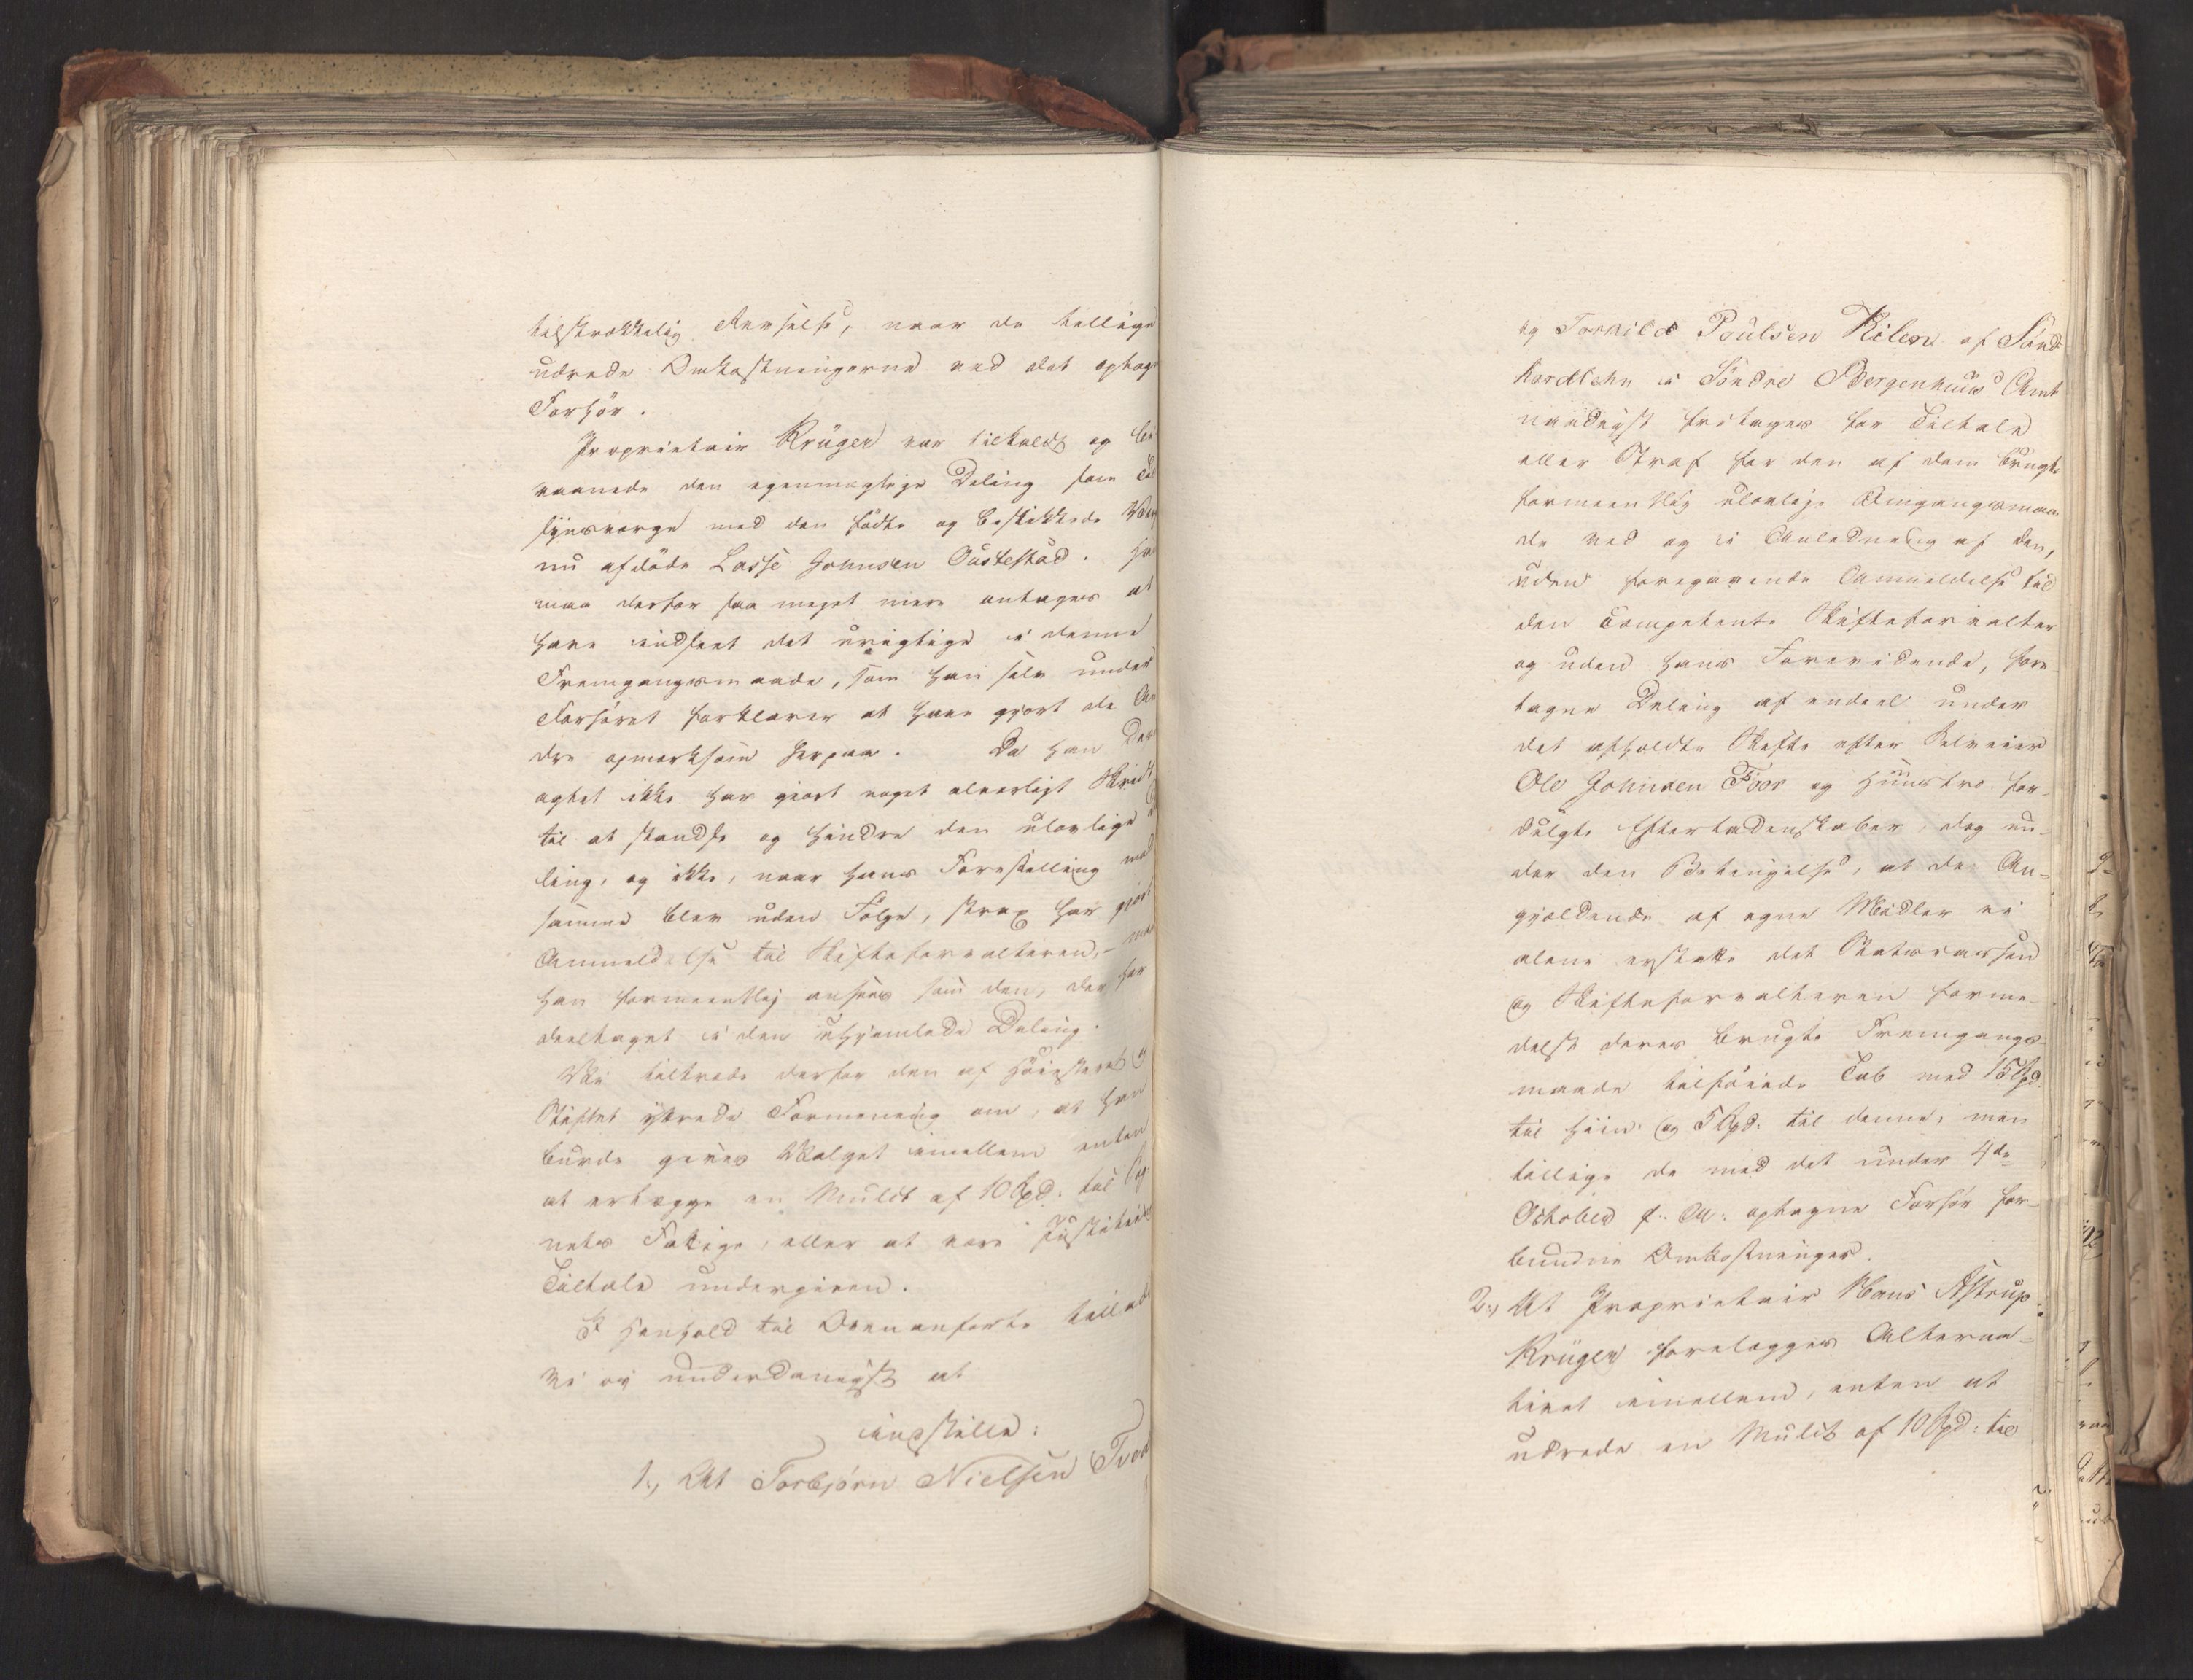 tilstrækkelig Revselse, naar de tillige
udrede Omkostningerne ved det optagne
Forhör.
Proprietair Krüger var tilkaldt og bi
vaanede den egenmægtige Deling som Til
synsværge med den födte og beskikkede Værge
nu afdöde Lasse Johnsen Oustestad. Han
maa derfor saa meget mere antages at
have indseet det urigtige i denne
Fremgangsmaade, som han selv under
Forhöret forklarer at have gjort de An
dre opmærksom herpaa. Da han des
agtet ikke har gjort noget alvorligt Skridt
til at standse og hindre den ulovlige
ling, og ikke, naar hans Forestilling mod
samme blev uden Fölge, strax har gjort
Anmeldelse til Skifteforvalteren, – maa
han formeentlig ansees som den, der har
deeltaget i den uhjemlede Deling.
Vi tiltræde derfor den af Höiesteret og
Stiftet yttrede Formening om, at han
burde gives Valget imellem enten
at erlægge en Mulct af 10 Spd: til Og
nets Fattige, eller at være Justitiens
Tiltale undergiven.
I Henhold til Ovenanförte tillade
Vi os underdanigst at
indstille:
1., At Torbjörn Nielsen Tved
og Torkild Poulsen Kilen af Sönd
Hordlehn i Söndre Bergenhuus Amt
naadigst fritages for Tiltale
eller Straf for den af dem brugte
formeentlig ulovlige Omgangsmaa
de ved og i Anledning af den,
uden foregaaende Anmeldelse til
den Competente Skifteforvalter
og uden hans Forevidende, fore
tagne Deling af endeel under
det afholdte Skifte efter Selveier
Ole Johnsen Töer og Huustro for-
dulgte Efterladenskaber, dog un-
der den Betingelse, at de An=
gjældende af egne Midler ei
alene erstatte det Statscassen
og Skifteforvalteren forme-
delst deres brugte Fremgangs-
maade tilföiede Tab med 15 Spd.
til hiin og 5 Spd: til denne, men
tillige de med det under 4de
October f: A: optagne Forhör for-
bundne Omkostninger.
2., At Proprietair Hans Astrup
Krüger forelægges Alterna=
tivet imellem, enten at
udrede en Mulct af 10 Spd: til